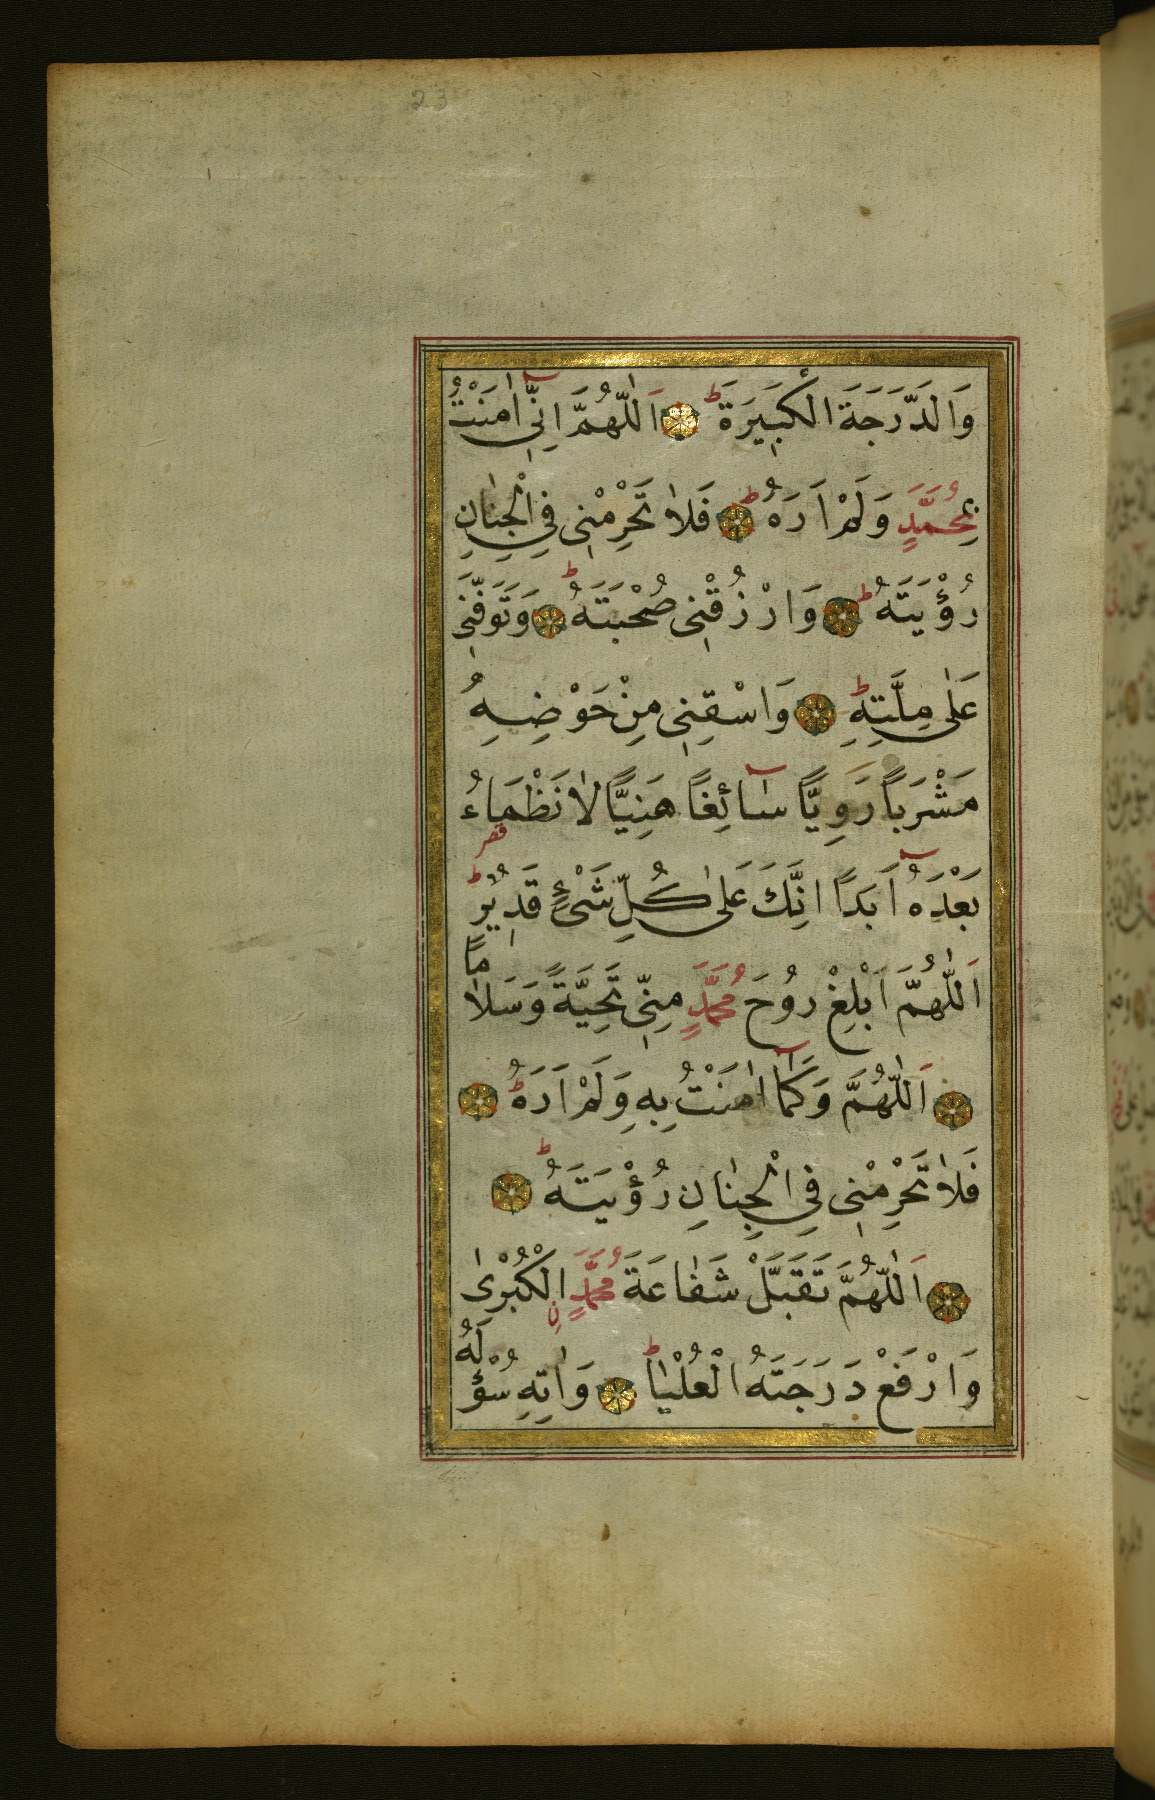 23
وَالدَّرَجَةَ الْكَبِيرَةَ ط اَللّٰهُمَّ اِنِّىٓ اٰمَنْتُ
بِمُحَمَّدٍ وَلَمْ اَرَهُ ط فَلاٰ تَحْرِمْنِى فِى الْجِنٰانِ
رُؤْيَتَهُ ط وَارْزُقْنِى صُحْبَتَهُ ط وَتَوَفَّنِى
عَلٰى مِلَّتِهِ ط وَاسْقِنِى مِنْ حَوْضِهِ
مَشْرَباً رَوِيًّا سٰٓائِغًا هَنِيًّا لاٰ نَظْمَاءُ
بَعْدَهُٓ اَبَدًا اِنَّكَ عَلٰى كُلِّ شَىْءٍ قَدِيرٌ ط
اَللّٰهُمَّ اَبْلِغْ رُوحَ مُحَمَّدٍ مِنِّى تَحِيَّةً وَسَلاٰمًا
اَللّٰهُمَّ وَكَمٰٓا اٰمَنْتُ بِهِ وَلَمْ اَرَهُ ط
فَلاٰ تَحْرِمْنِى فِى الْجِنٰانِ رُؤْيَتَهُ ط
اَللّٰهُمَّ تَقَبَّلْ شَفٰاعَةَ مُحَمَّدٍ نِ الْكُبْرٰى
وَارْفَعْ دَرَجَتَهُ الْعُلْيٰا ط وَاٰتِهِ سُؤْلَهُ